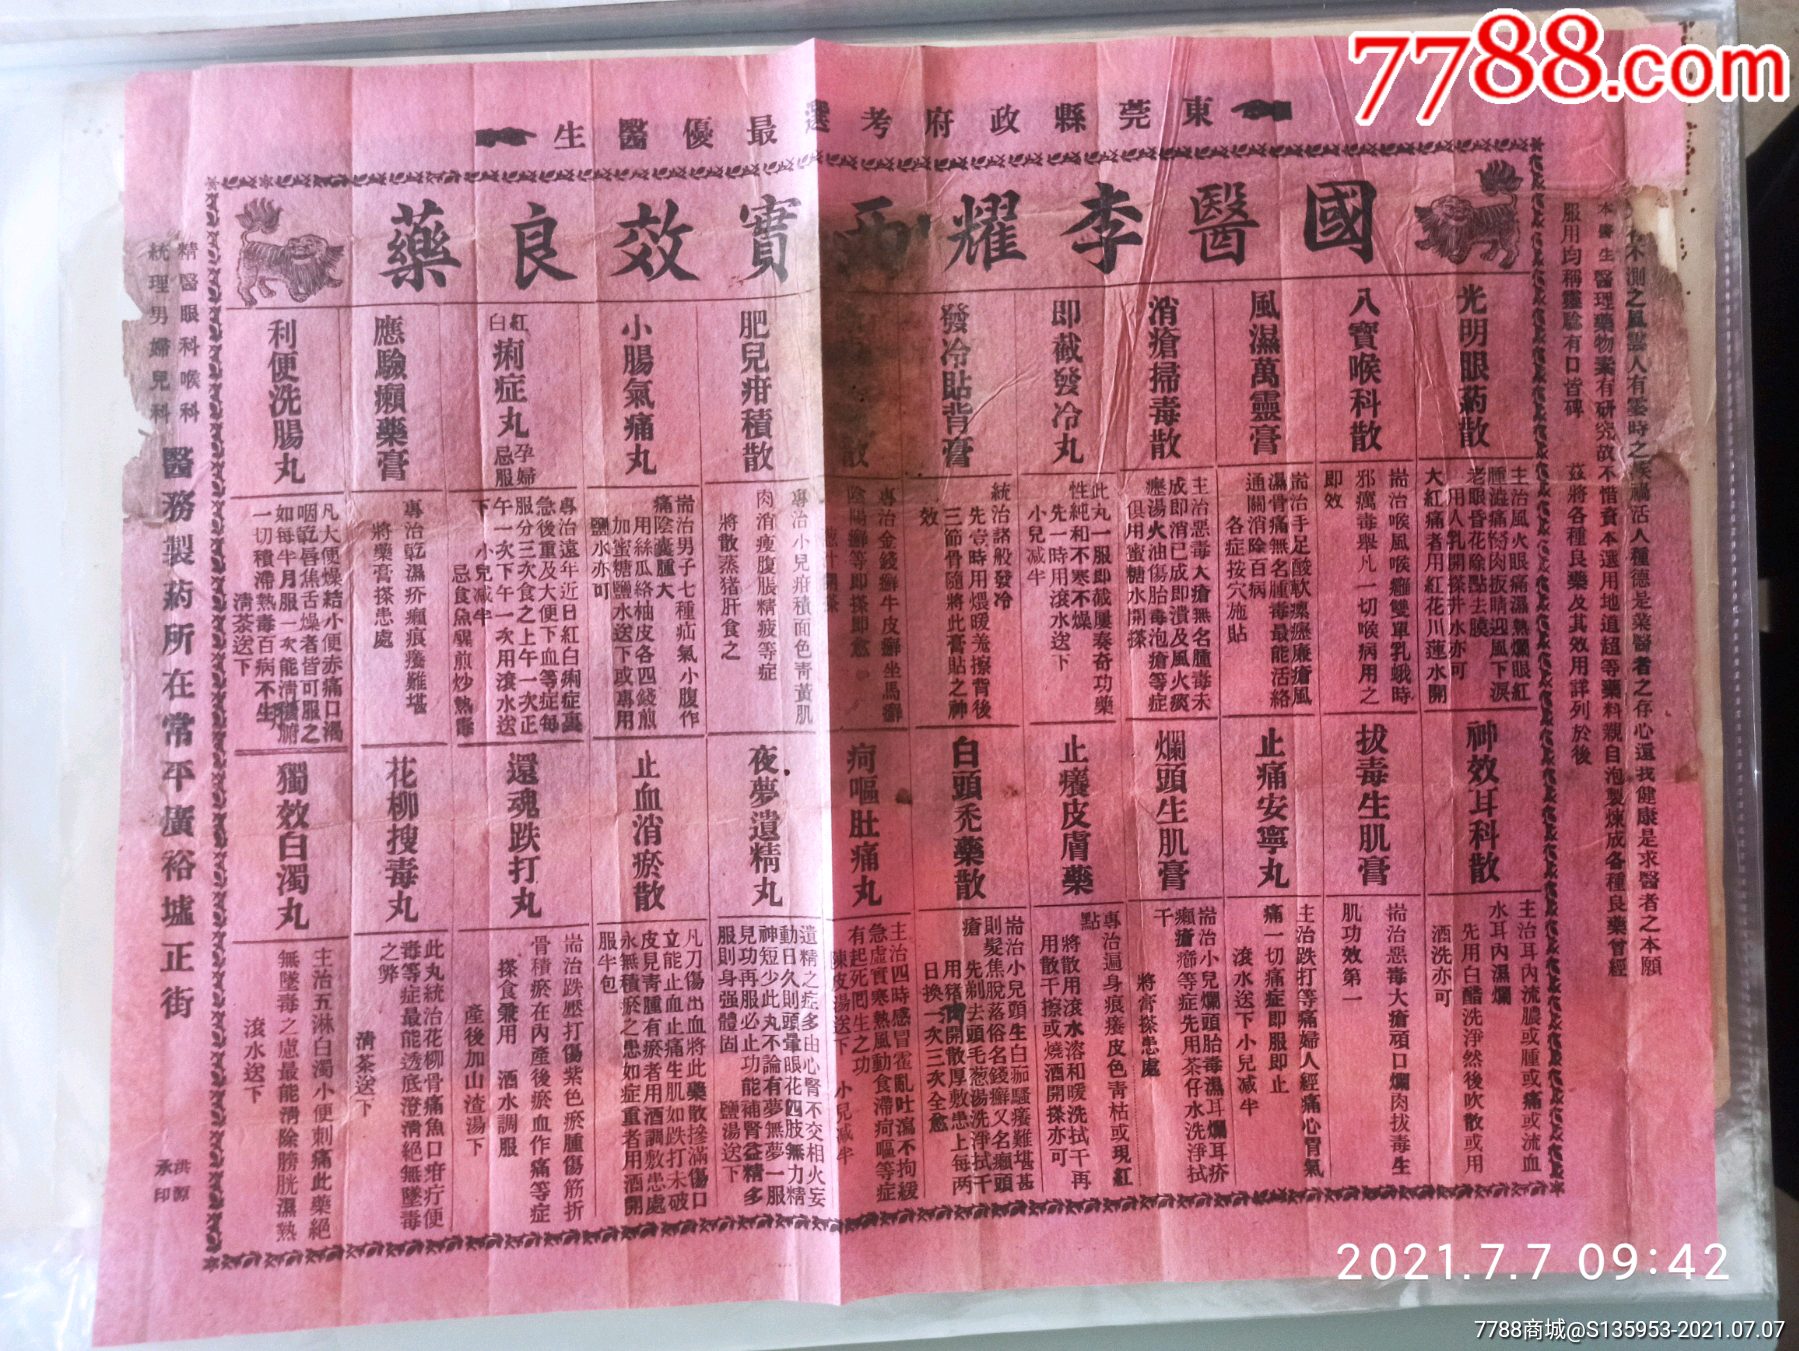 7788.com
東莞縣政府考選最優醫生
國醫李耀西實效良藥
本醫生醫理藥物素有研究故不惜資本選用地道超等藥料親自泡製煉成各種良藥曾經
服用均稱靈驗有口皆碑
茲將各種良藥及其效用詳列於後
光明眼葯散
主治風火眼痛濕熱爛眼紅
腫澁痛
老眼昏花除點去膜
用人乳開搽井水亦可
大紅痛者用紅花川蓮水開
八寶喉科散
耑治喉風喉癰雙單乳蛾時
邪癘毒舉凡一切喉病用之
即效
風濕萬靈膏
耑治手足酸軟瘰癧廉瘡風
濕骨痛無名腫毒最能活絡
通關消除百病
各症按穴施貼
消瘡掃毒散
主治惡毒大瘡無名腫毒未
成即消已成即潰及風火痰
癧湯火油傷胎毒泡瘡等症
俱用蜜糖水開搽
即截發冷丸
此丸一服即截屢奏奇功藥
性純和不寒不燥
先一時用滾水送下
小兒減半
發冷貼背膏
統治諸般發冷
先壹時用煨暖羗擦背後
三節骨隨將此膏貼之神
效
專治金錢癬牛皮癬坐馬癬
陰陽癬等即搽即愈
肥兒疳積散
專治小兒疳積面色靑黃肌
肉消瘦腹脹精疲等症
將散蒸猪肝食之
小腸氣痛丸
耑治男子七種疝氣小腹作
痛陰囊腫大
用絲瓜絡柚皮各四錢煎
加蜜糖鹽水送下或專用
鹽水亦可
紅白痢症丸
孕婦忌服
專治遠年近日紅白痢症裏
急後重及大便下血等症每
服分三次食之上午一次正
午一次下午一次用滾水送
下
小兒減半
忌食魚腥煎炒熱毒
應驗癩藥膏
專治乾濕疥癩痕癢難堪
將藥膏搽患處
利便洗腸丸
凡大便燥結小便赤痛口渴
咽乾唇焦舌燥者皆可服之
如每半月服一次能淸腸腑
一切積滯熱毒百病不生
淸茶送下
神效耳科散
主治耳內流膿或腫或痛或流血
水耳內濕爛
先用白醋洗淨然後吹散或用
酒洗亦可
拔毒生肌膏
耑治惡毒大瘡頑口爛肉拔毒生
肌功效第一
止痛安寧丸
主治跌打等痛婦人經痛心胃氣
痛一切痛症即服即止
滾水送下小兒減半
爛頭生肌膏
耑治小兒爛頭胎毒濕耳爛耳疥
癩瘡癤等症先用茶仔水洗淨拭
干
將膏搽患處
止癢皮膚藥
專治遍身痕癢皮色靑枯或現紅
點
將散用滾水溶和暖洗拭干再
用散干擦或燒酒開搽亦可
白頭禿藥散
耑治小兒頭生白茄騷癢難堪甚
則髮焦脫落俗名錢癬又名癩頭
瘡
先剃去頭毛葱湯洗淨拭干
用猪油開散厚敷患上每両
日換一次三次全愈
疴嘔肚痛丸
主治四時感冒霍亂吐瀉不拘緩
急虛實寒熱風動食滯疴嘔等症
有起死囘生之功
陳皮湯送下
小兒減半
夜夢遺精丸
遺精之症多由心腎不交相火妄
動日久則頭暈眼花四肢無力精
神短少此丸不論有夢無夢一服
見功再服必止功能補腎益精多
服則身强體固
鹽湯送下
止血消瘀散
凡刀傷出血將此藥散摻滿傷口
立能止血止痛生肌如跌打未破
皮見靑腫有瘀者用酒調敷患處
永無積瘀之患如症重者用酒開
服半包
還魂跌打丸
耑治跌壓打傷紫色瘀腫傷筋折
骨積瘀在內產後瘀血作痛等症
搽食兼用
酒水調服
產後加山渣湯下
花柳搜毒丸
此丸統治花柳骨痛魚口疳疔便
毒等症最能透底澄淸絕無墜毒
之弊
淸茶送下
獨效白濁丸
主治五淋白濁小便刺痛此藥絕
無墜毒之慮最能淸除膀胱濕熱
滾水送下
精醫眼科喉科
統理男婦兒科
醫務製葯所在常平廣裕墟正街
洪源
承印
2021.7.7 09:42
7788商城@S135953-2021.07.07